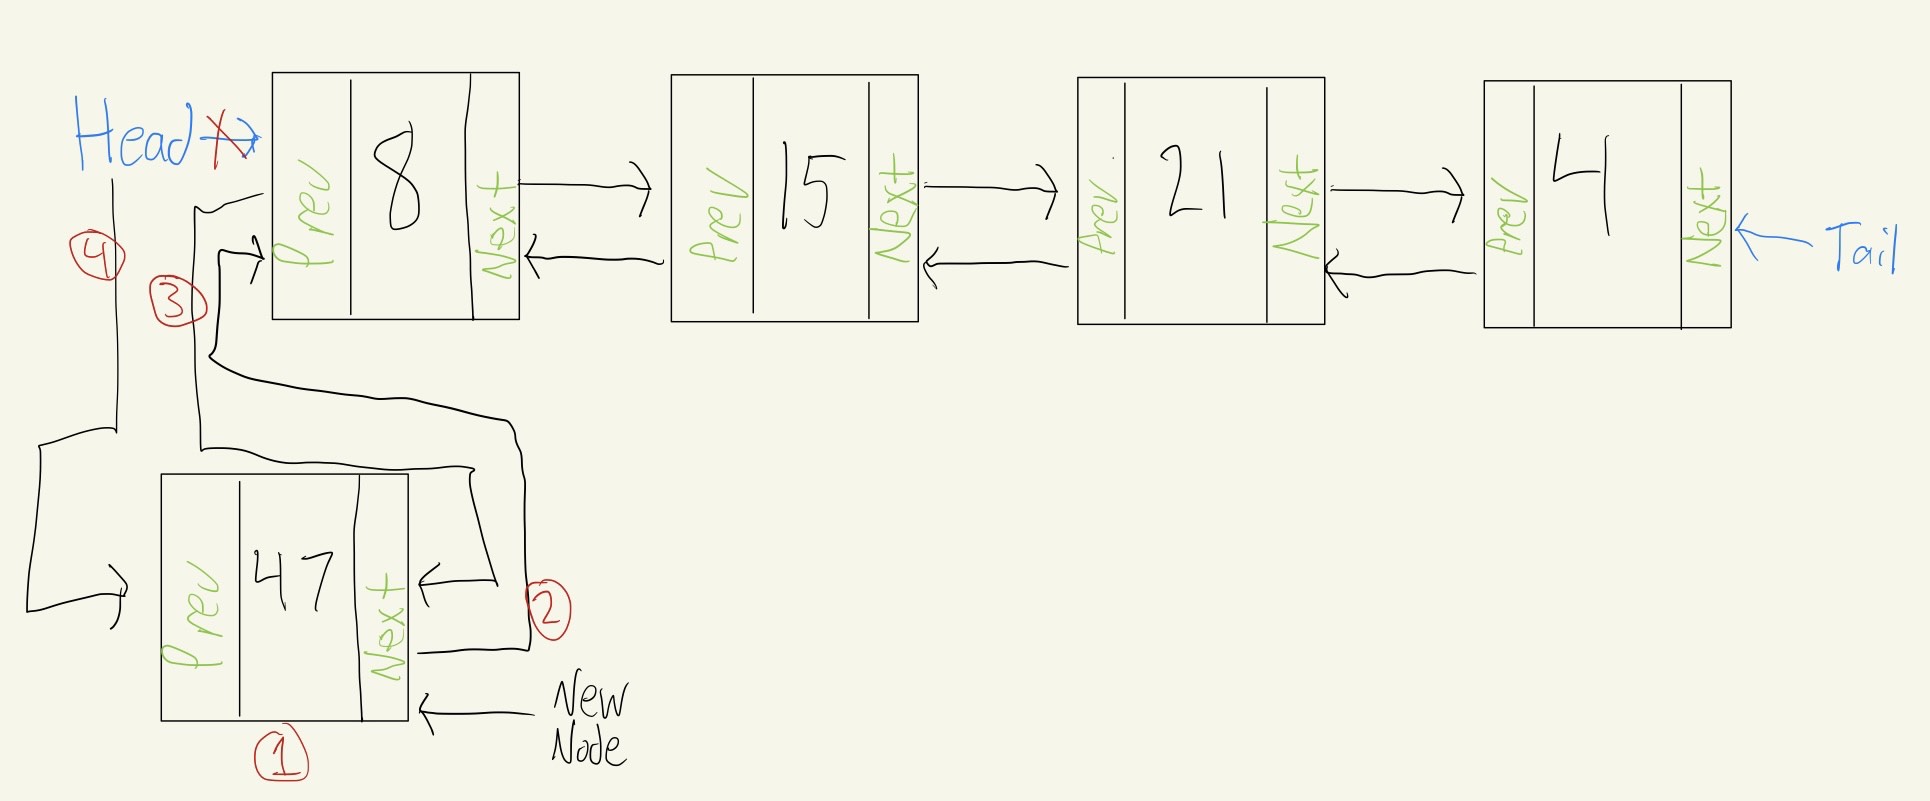 Head
Prev 8 Next
Prev 15 Next
Prev 21 Next
Prev 4 Next
Tail
4
3
Prev 47 Next
2
New
Node
1